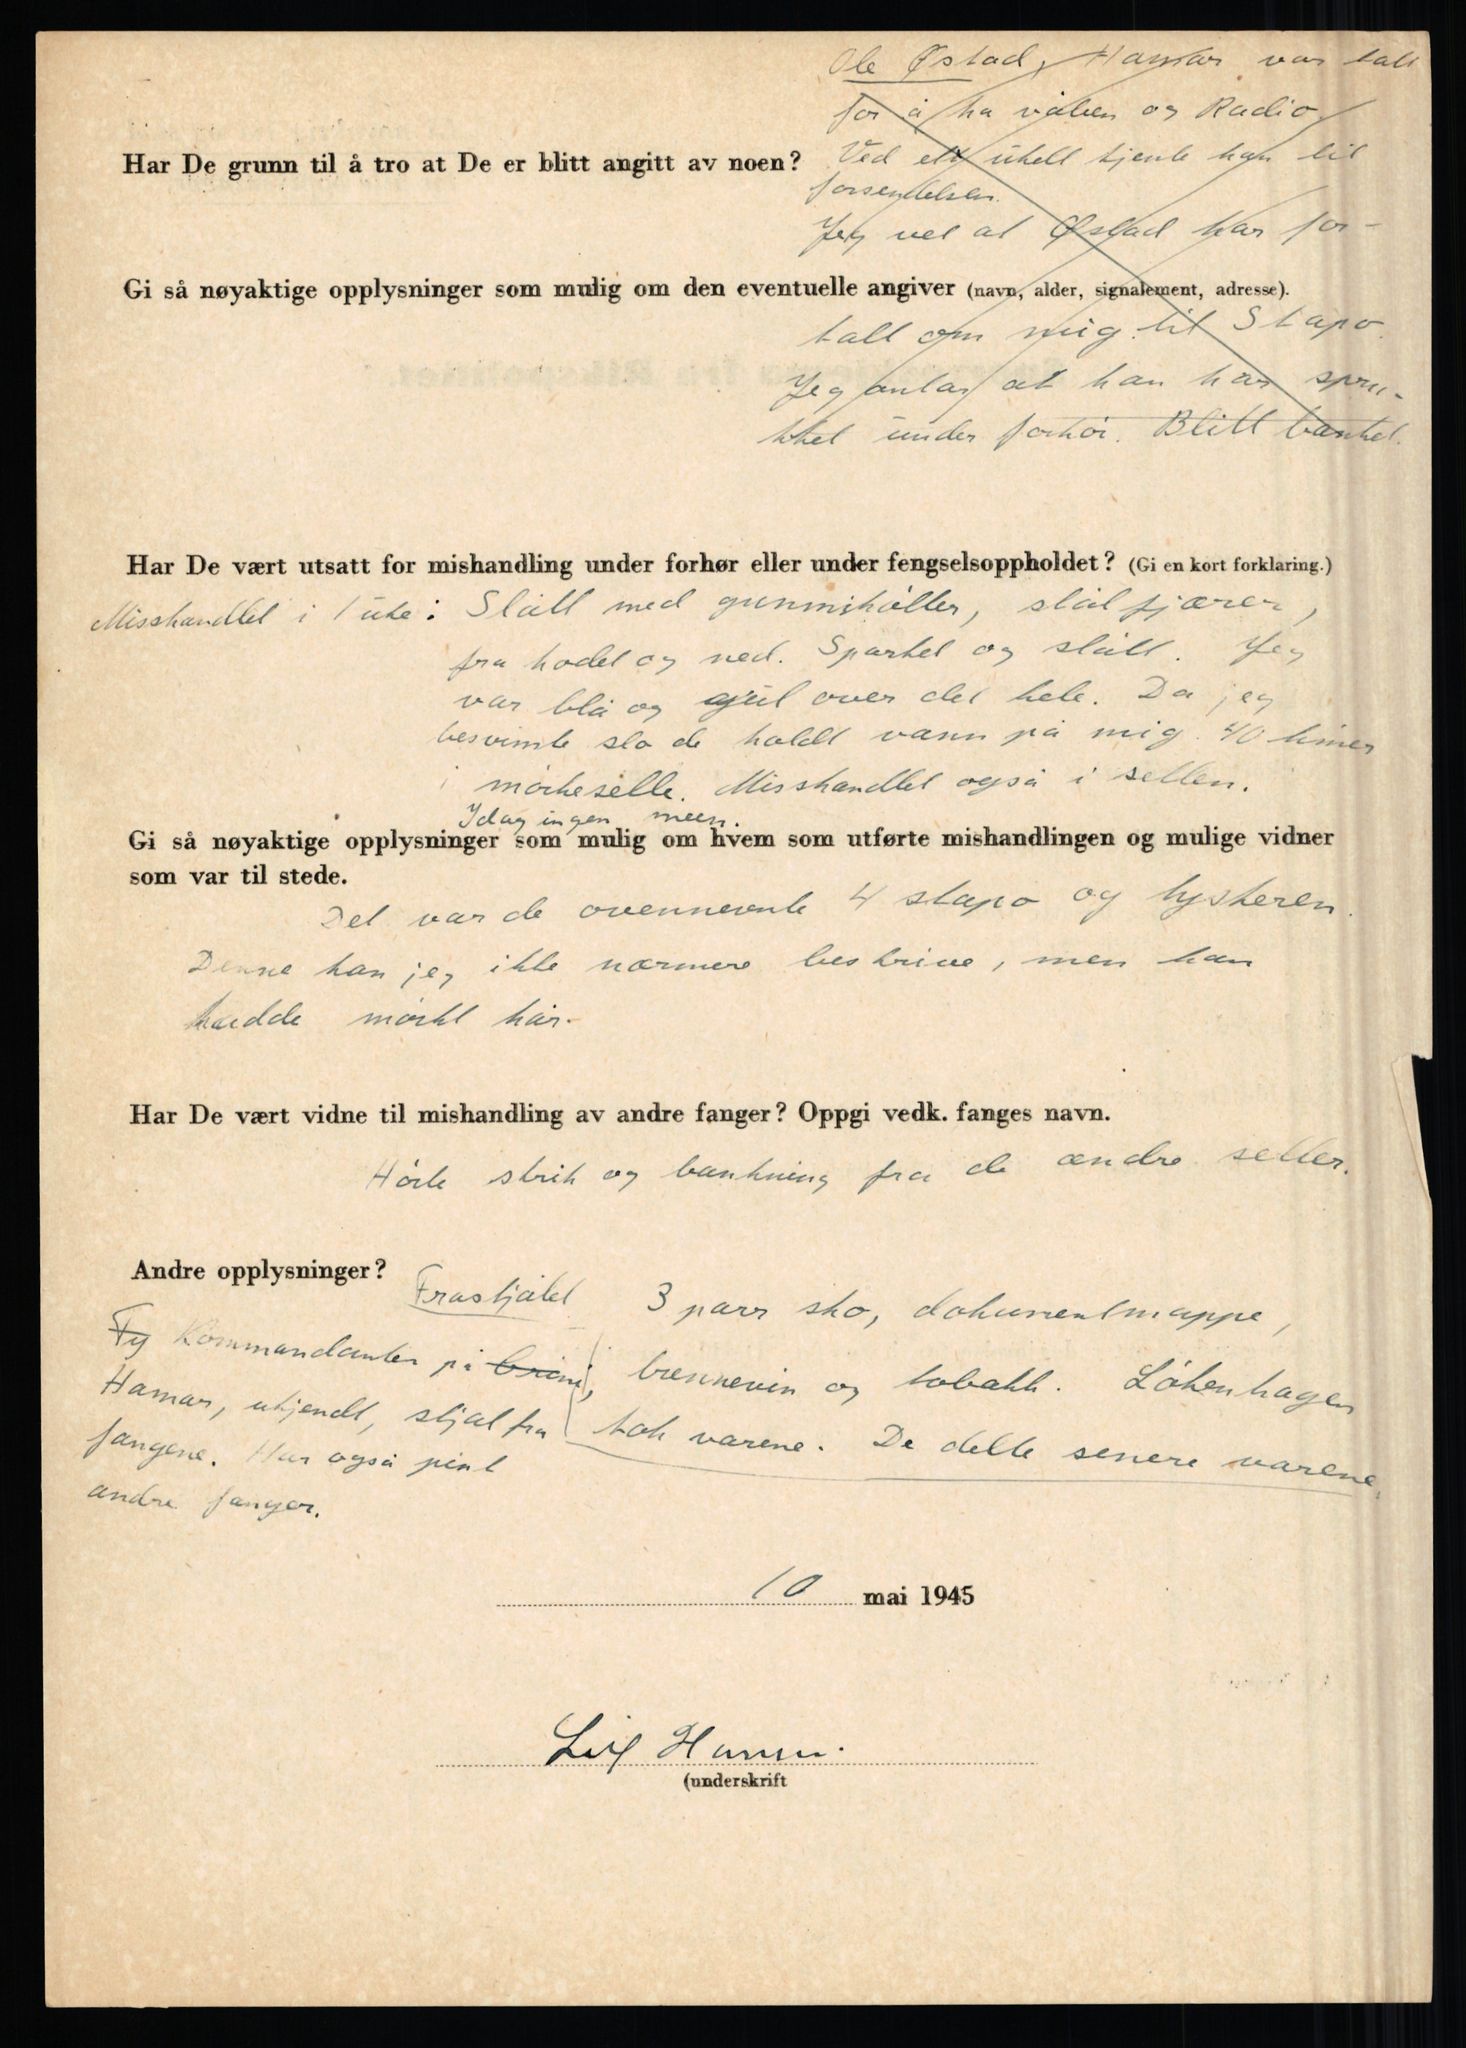 Ole Østad, Hamar var tatt
for å ha våben og Radio.
Har De grunn til å tro at De er blitt angitt av noen?
Ved ett uhell kjente han til
forsendelsen.
Jeg vet at Østad har for-
Gi så nøyaktige opplysninger som mulig om den eventuelle angiver (navn, alder, signalement, adresse).
talt om mig til Stapo.
Jeg antar at han har spru-
kket under forhör. Blitt banket.
Har De vært utsatt for mishandling under forhør eller under fengselsoppholdet? (Gi en kort forklaring.)
Misshandlet i 1 uke: Slått med gummikøller, stålfjærer,
fra hodet og ned. Sparket og slått. Jeg
var blå og gul over det hele. Da jeg
besvimte slo de holdt vann på mig. 40 timer
i mørkeselle. Misshandlet også i sellen.
Idag ingen meen.
Gi så nøyaktige opplysninger som mulig om hvem som utførte mishandlingen og mulige vidner
som var til stede.
Det var de ovennevnte 4 stapo og tyskeren.
Denne kan jeg ikke nærmere beskrive, men han
hadde mørkt hår.
Har De vært vidne til mishandling av andre fanger? Oppgi vedk. fanges navn.
Hørte skrik og bankning fra de andre seller.
Andre opplysninger?
Frastjålet 3 parr sko, dokumentmappe,
brennevin og tobakk. Løkenhagen
tok varene. De delte senere varene.
Fg Kommandanten på Grini,
Hamar, ukjendt, stjal fra
fangene. Har også pint
andre fanger.
10 mai 1945
Leif Hansen.
(underskrift